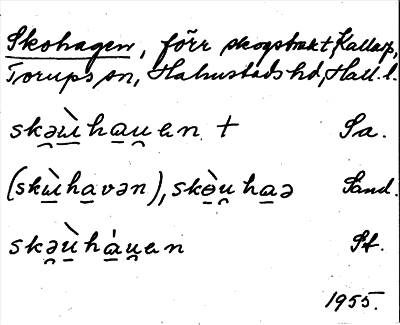 Skohagen, förr skogstrakt, Kallarp,
Torups sn, Halmstads hd, Hall. l.
skə̯ù̱ha̱u̯ən + Sa.
(skù̱ha̱vən), skə̱̀u̯ha̱ə Sand.
skə̯ù̱hȧ̱u̯ən St.
1955.